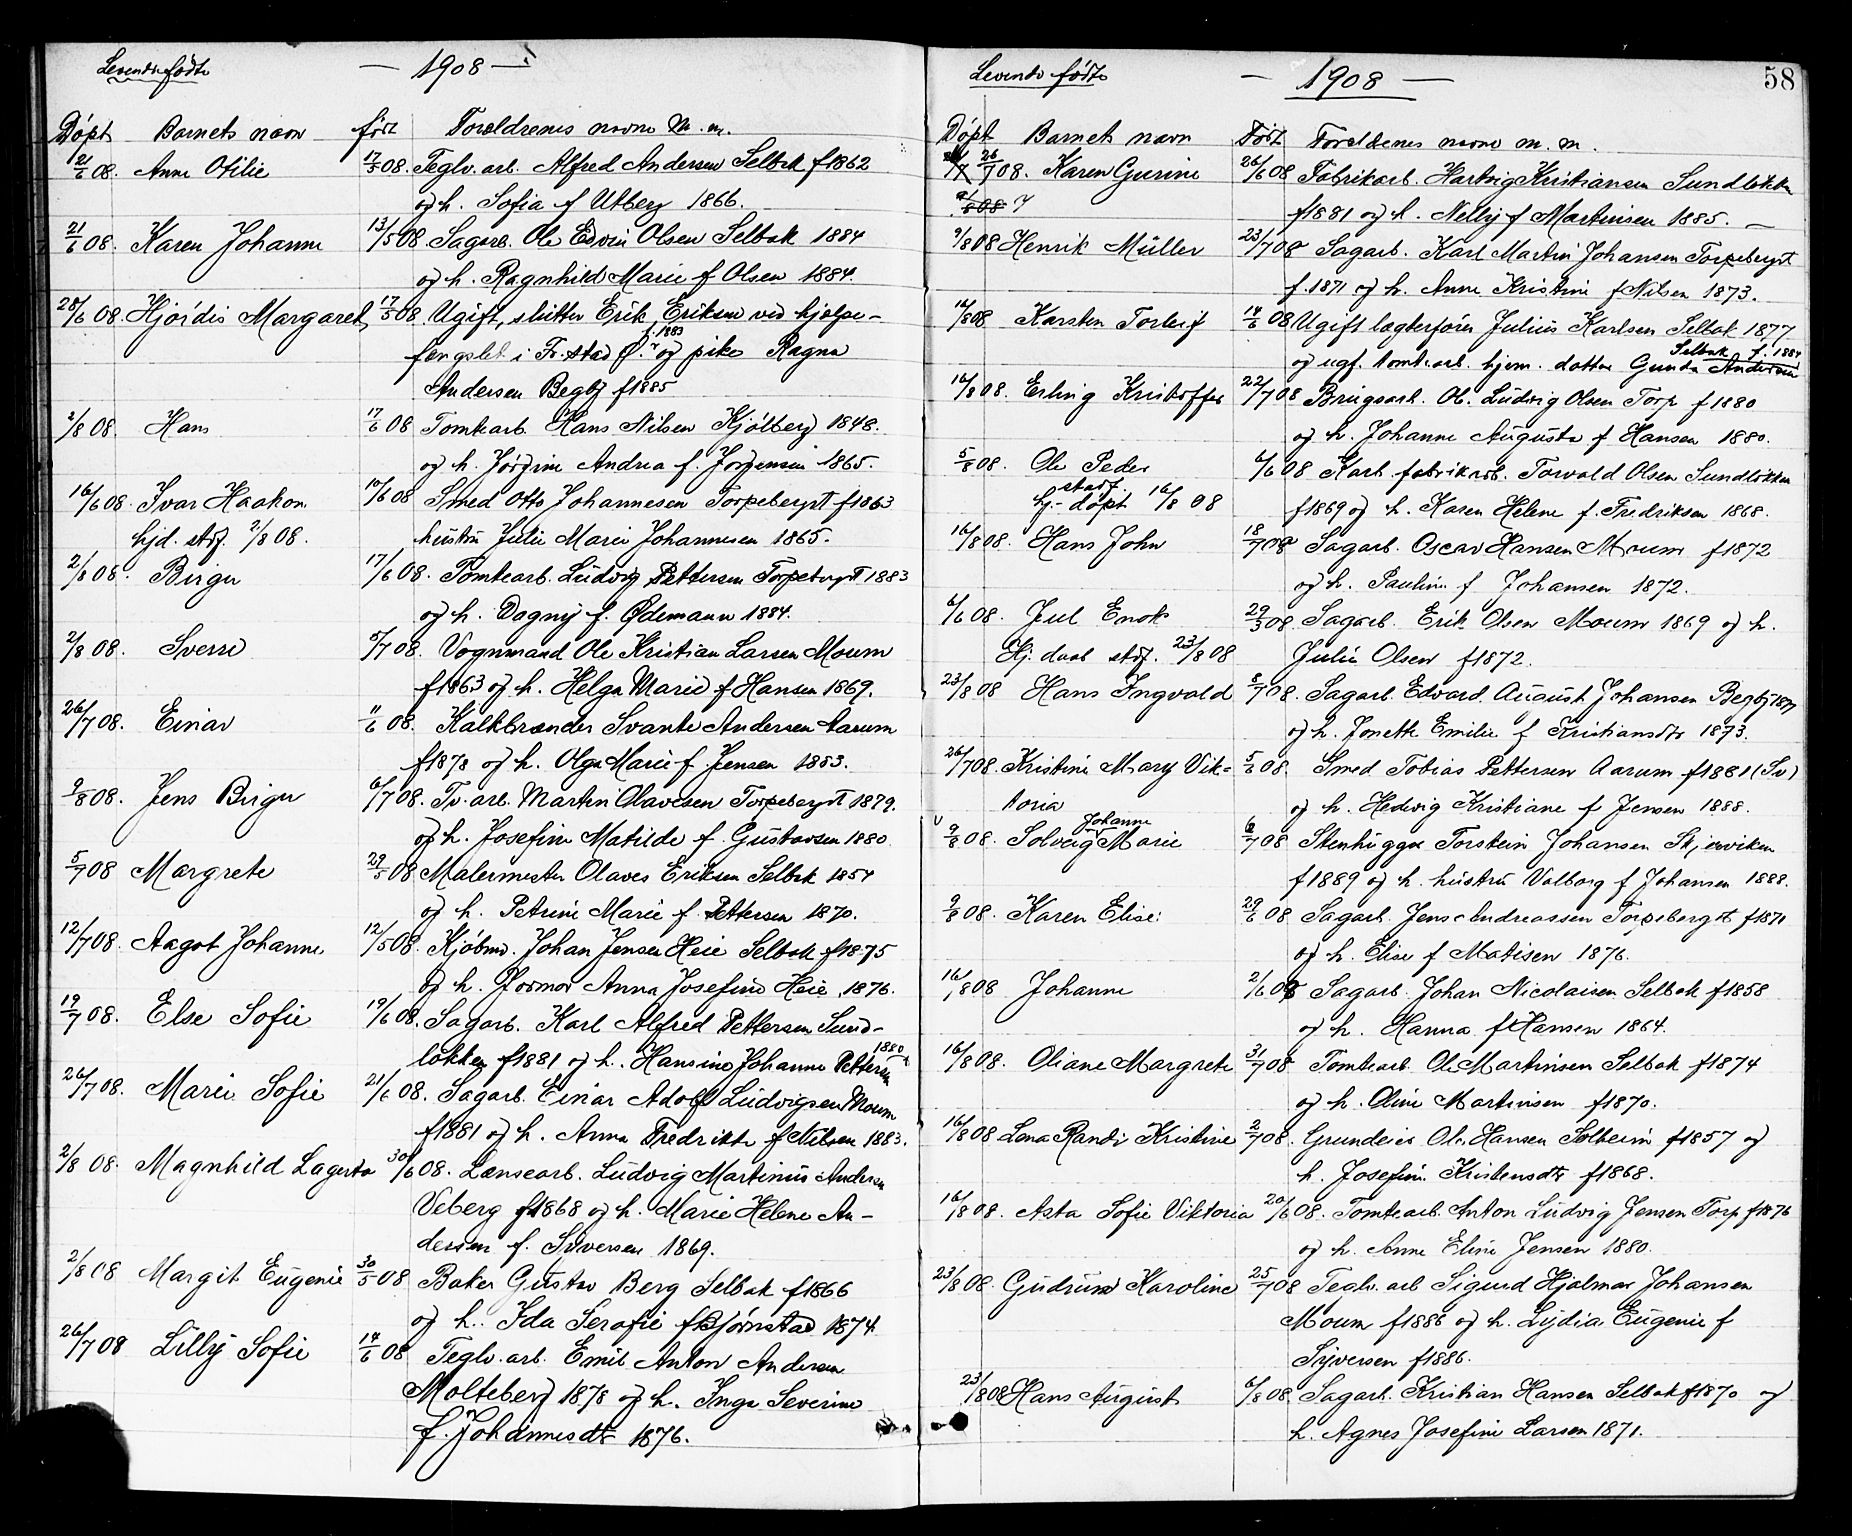 Levende fødte — 1908 —
Døpt Barnets navn født Foreldrenes navne m. m.
21/6 08. Anne Otilie 17/5 08. Teglv. arb. Alfred Andersen Selbak f1862
og h. Sofia f Utberg 1866.
21/6 08. Karen Johanne 13/5 08 Sagarb. Ole Edvin Olsen Selbak 1884
og h. Ragnhild Marie f Olsen 1884.
28/6 08. Hjørdis Margaret 17/5 08. Ugift, slutter Erik Eriksen ved hjelpe-
fængslet i Fr.stad Ø. f. 1883 og pike Ragna
Andersen Begby f1885
2/8 08. Hans 17/6 08 Tomtearb. Hans Nilsen Kjölberg 1848.
og h. Jörgine Andrea f. Jörgensen 1865.
16/6 08. Ivar Haakon 10/6 08 Smed Otto Johannesen Torpebergt f1863
hjd. stdf. 2/8 08. hustru Julie Marie Johannesen 1865.
2/8 08. Birger 17/6 08. Tomtearb. Ludvig Pettersen Torpebergt 1883
og h. Dagny f. Ødemann 1884.
2/8 08. Sverre 5/7 08. Vognmand Ole Kristian Larsen Moum
f1863 og h. Helga Marie f Hansen 1869.
26/7 08. Einar 11/6 08. Kalkbrænder Svante Andersen Aarum
f1878 og h. Olga Marie f. Jensen 1883.
9/8 08. Jens Birger 6/7 08. Tv. arb. Martin Olavesen Torpebergt 1879.
og h. Josefine Matilde f. Gustavsen 1880
5/7 08 Margrete 29/5 08 Malermester Olaves Eriksen Selbak 1854
og h. Petrine Marie f. Pettersen 1870.
12/7 08. Aagot Johanne 12/5 08. Kjöbmd. Johan Jensen Heie Selbak f1875
og h. Jormor Anna Josefine Heie 1876.
19/7 08. Else Sofie 19/6 08. Sagarb. Karl Alfred Pettersen Sund-
løkken f1881 og h. Hansine Johanne Pettersen 1880
26/7 08. Marie Sofie 21/6 08. Sagarb. Einar Adolf Ludvigsen Moum
f1881 og h. Anna Fredrikke f Nilsen 1883.
2/8 08. Magnhild Lagerta 30/6 08. Lensearb. Ludvig Martinius Andersen
Veberg f1868 og h. Marie Helene An-
dersen f. Syversen 1869.
2/8 08 Margit Eugenie 30/5 08 Baker Gustav Berg Selbak f1866
og h. Ida Serafie f Bjørnstad 1874
26/7 08 Lilly Sofie 14/6 08 Teglv. arb. Emil Anton Andersen
Molteberg 1878 og h. Inga Severine
f. Johannesdtr 1876.
Levende fødte — 1908 — 58
Døpt Barnets navn Født Foreldrenes navne m. m.
26/7 08. Karen Gurine 26/6 08 Fabrikarb. Hartvig Kristiansen Sundløkka
9/8 08 f1881 og h. Nelly f Martinsen 1885. —
9/8 08 Henrik Müller 23/7 08 Sagarb. Karl Martin Johansen Torpebergt
f. 1871 og h. Anne Kristine f Nilsen 1873.
16/8 08 Karsten Torleif 14/6 08 Ugift lægterfører Julius Karlsen Selbak 1877
og ugf. tomtearb. hjem. datter Gunda Andersen Selbak f. 1884
16/8 08. Erling Kristoffer 22/7 08 Brugsarb. Ol. Ludvig Olsen Torp f1880
og h. Johanne Augusta f Hansen 1880.
5/8 08. Ole Peder 6/6 08 Karb. fabrikarb. Torvald Olsen Sundløkken
hj.- døpt stadf. 16/8 08 f1869 og h. Karen Helene f. Fredriksen 1868.
16/8 08. Hans John 18/7 08 Sagarb. Oscar Hansen Moum f1872
og h. Pauline f Johansen 1872.
6/6 08. Jul Enok 29/3 08. Sagarb. Erik Olsen Moum 1869 og h.
Hj. daab stdf. 23/8 08 Julie Olsen f1872.
23/8 08 Hans Ingvald 8/7 08. Sagarb. Edvard August Johansen Begby 1877
og h. Jonette Emilie f Kristiansdtr 1873.
26/7 08. Kristine Mary Vik- 5/6 08. Smed Tobias Pettersen Aarum f1881 (Sv)
toria og h. Hedvig Kristiane f Jensen 1888.
9/8 08. Solveig Johanne Marie 6/7 08 Stenhugger Torstein Johansen Skjærviken
f1889 og h. hustru Valborg f Johansen 1888.
9/8 08. Karen Elise 29/6 08 Sagarb. Jens Andreassen Torpebergt f1871
og h. Elise f Matisen 1876.
16/8 08 Johanne 2/6 08 Sagarb. Johan Nicolaisen Selbak f1858
og h. Hanna f Hansen 1864.
16/8 08. Oliane Margrete 31/7 08 Tomtearb. Ole Martinsen Selbak f1874
og h. Oline Martinsen f1870.
16/8 08 Lena Randi Kristine 2/7 08. Grundeier Ole Hansen Solheim f1857 og
h. Josefine Kristensdtr f1868.
16/8 08. Asta Sofie Viktoria 20/6 08. Tomtearb. Anton Ludvig Jensen Torp f1876
og h. Anne Eline Jensen 1880.
23/8 08. Gudrun Karoline 25/7 08 Teglv. arb Sigurd Hjalmar Johansen
Moum f1886 og h. Lydia Eugenie f
Syversen f1886.
23/8 08 Hans August 6/8 08. Sagarb. Kristian Hansen Selbak f1870 og
h. Agnes Josefine Larsen 1871.